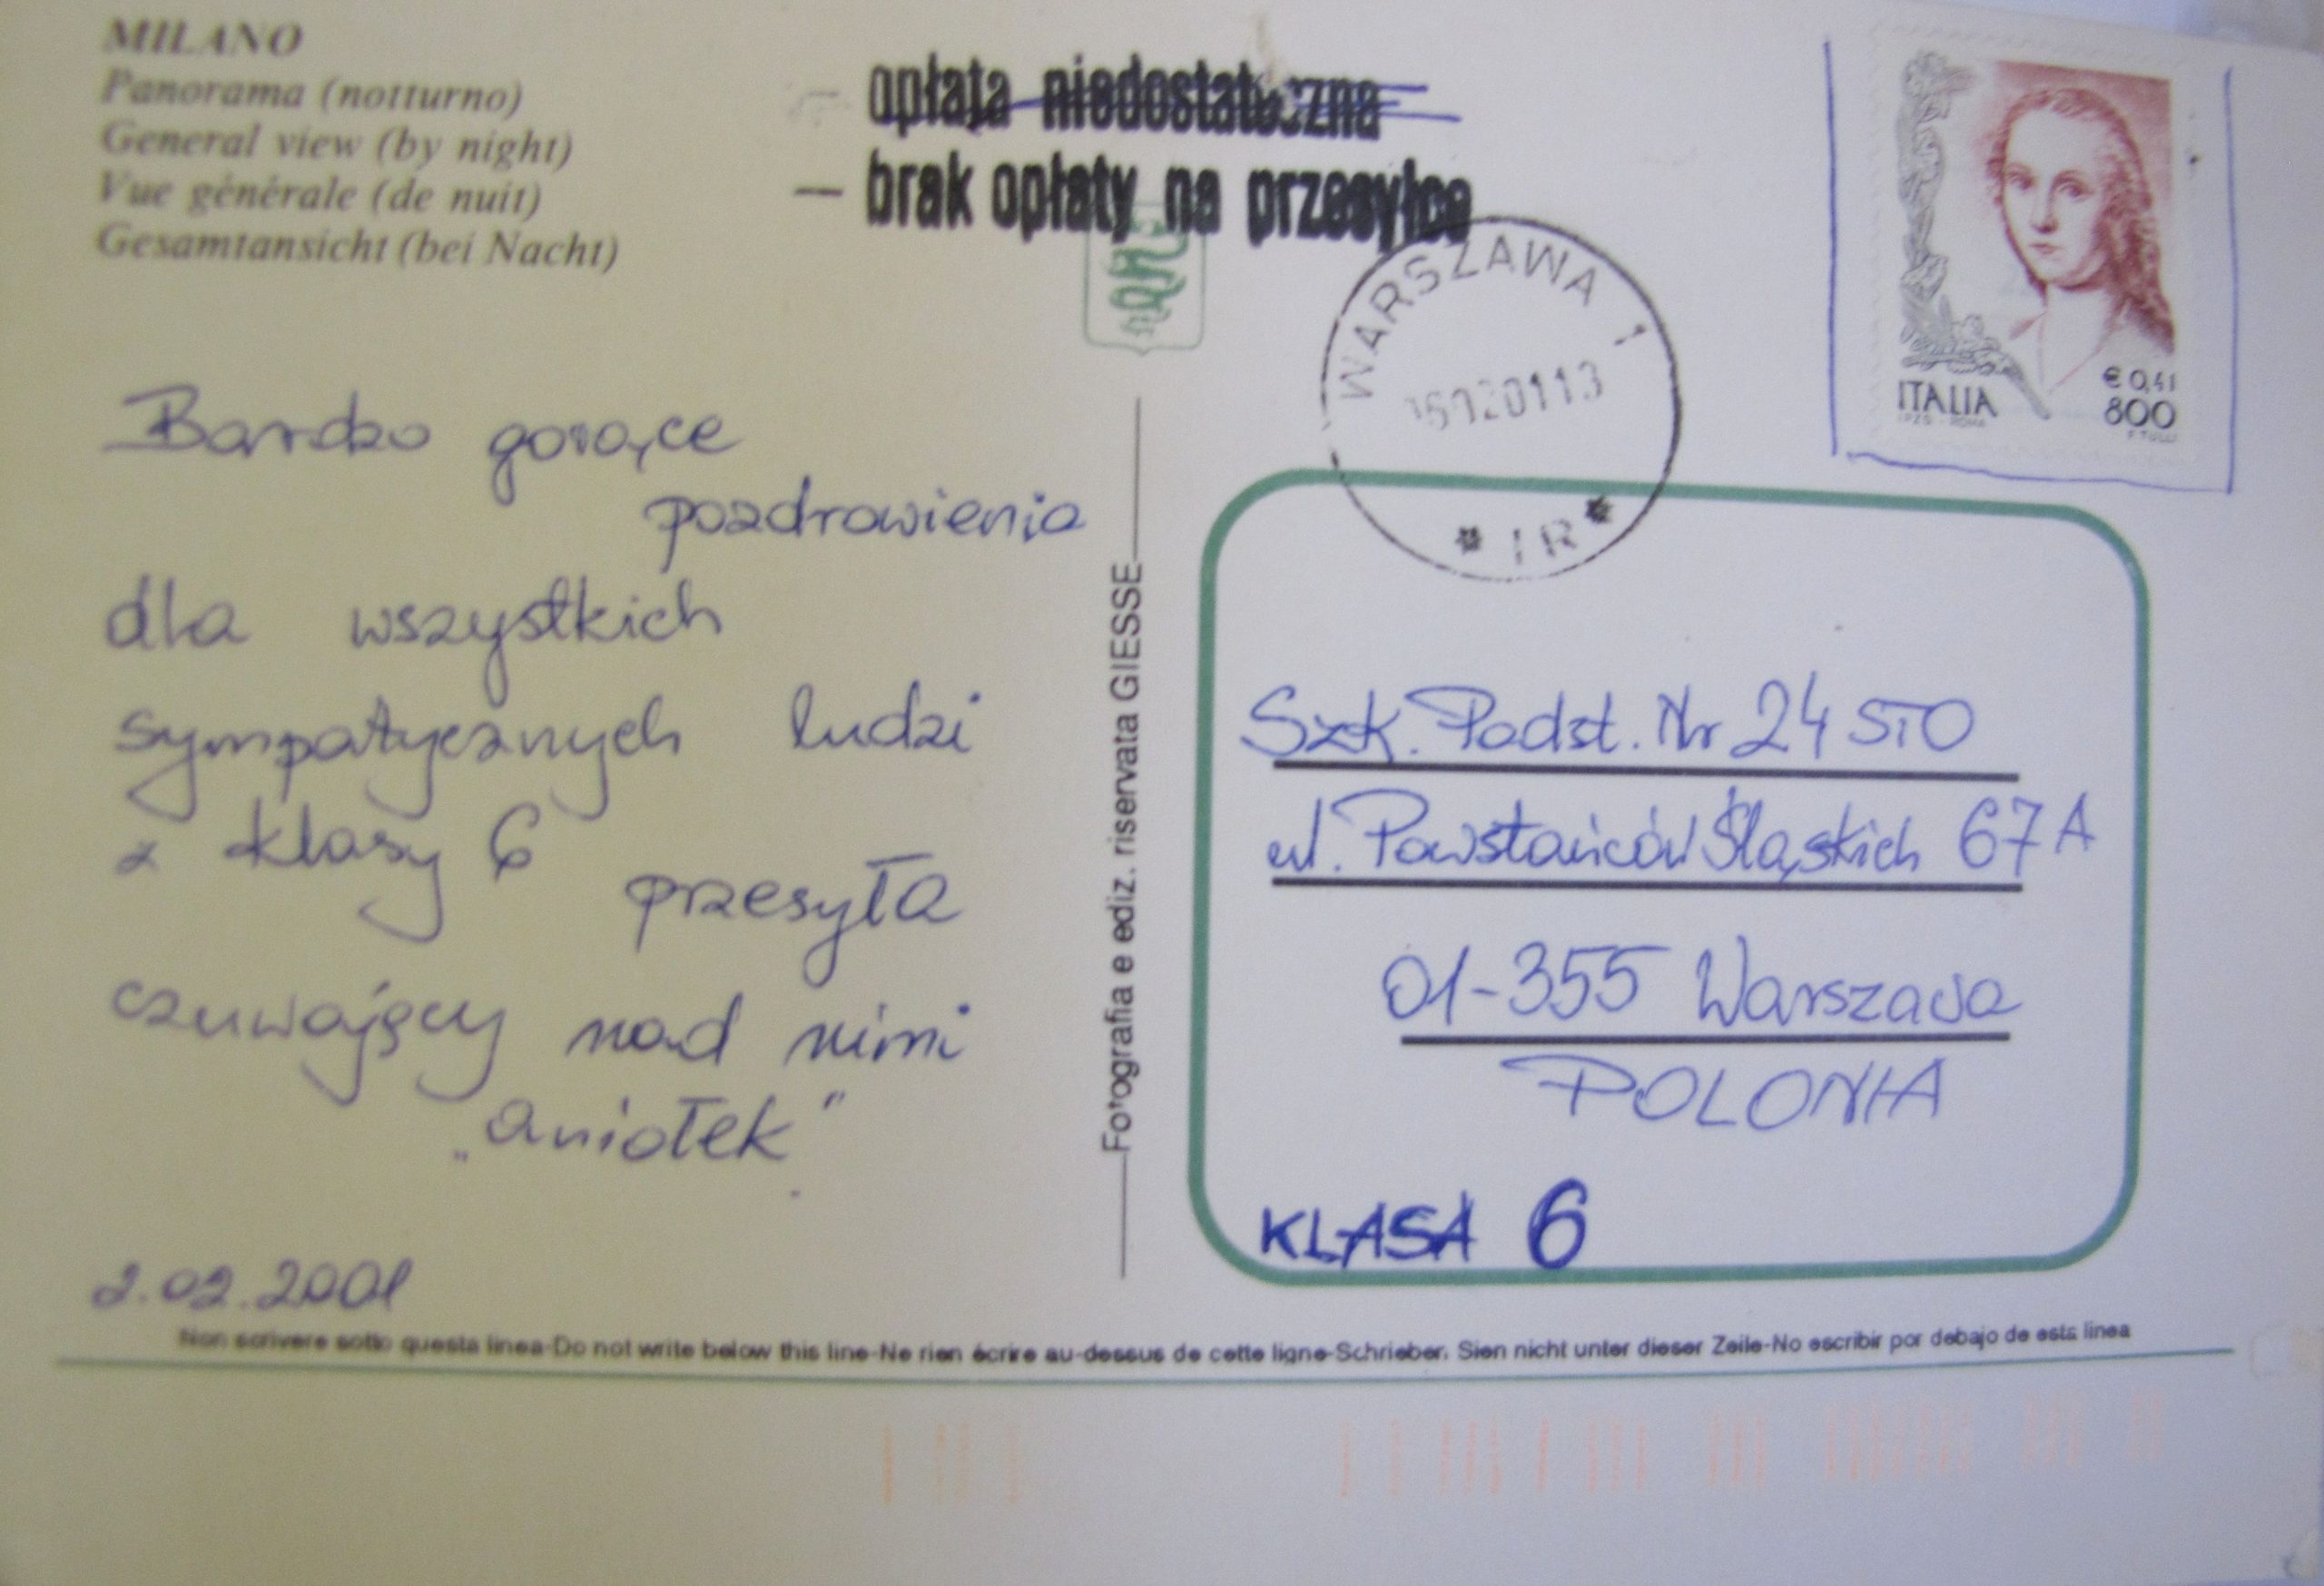 MILANO
Panorama (notturno)
General view (by night)
Vue générale (de nuit)
Gesamtansicht (bei Nacht)
opłata niedostateczna
— brak opłaty na przesyłce
WARSZAWA 1
* 1 R *
ITALIA
€ 0,41
800
Bardzo gorące
pozdrowienia
dla wszystkich
sympatycznych ludzi
z klasy 6
przesyła
czuwający nad nimi
„aniołek”
2.02.2001
Fotografia e ediz. riservata GIESSE
Szk. Podst. Nr 24 STO
ul. Powstańców Śląskich 67A
01-355 Warszawa
POLONIA
KLASA 6
Non scrivere sotto questa linea-Do not write below this line-Ne rien écrire au-dessus de cette ligne-Schrieber. Sien nicht unter dieser Zeile-No escribir por debajo de esta linea